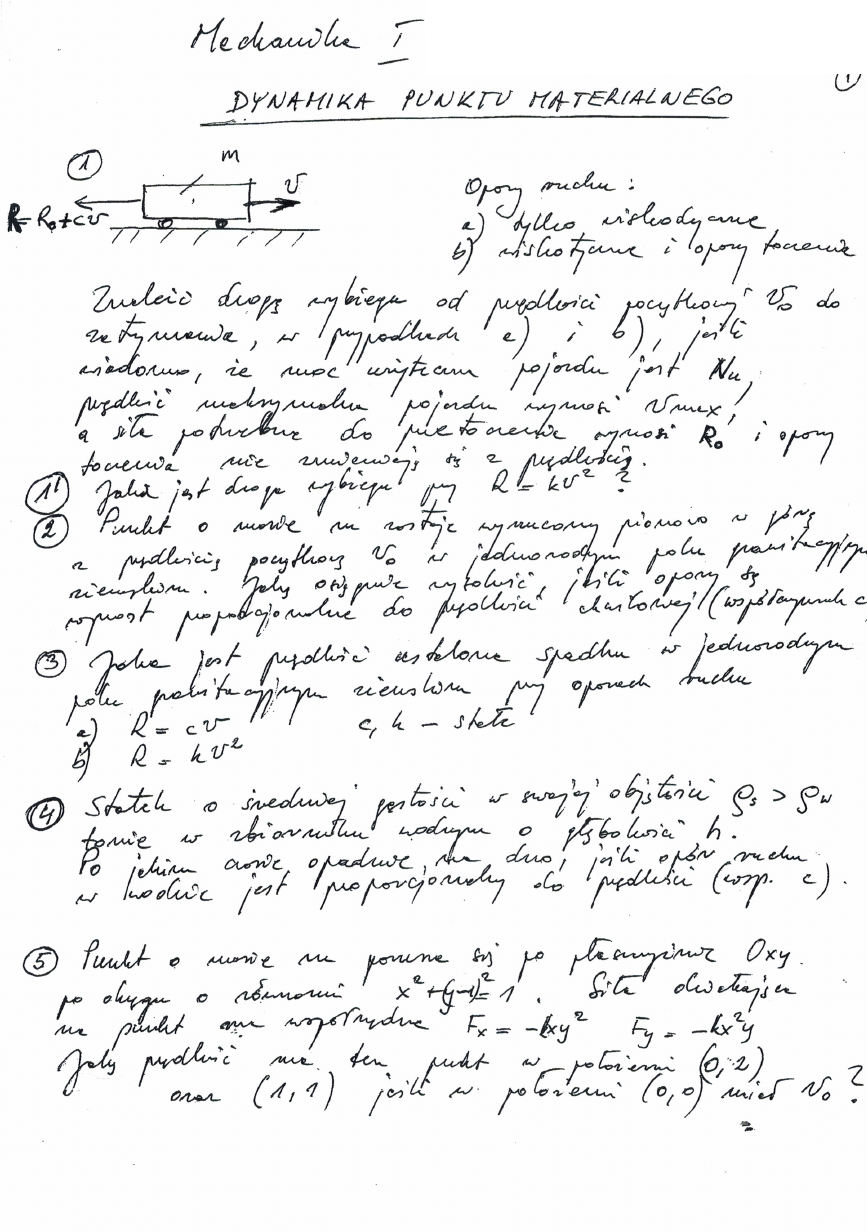 Mechanika I
1
DYNAMIKA PUNKTU MATERIALNEGO
1
m
v
R = R₀ + cv
Opory ruchu:
a) tylko wiskotyczne
b) wiskotyczne i opory toczenia
Znaleźć drogę wybiegu od prędkości początkowej v₀ do
zatrzymania, w przypadkach a) i b), jeśli
wiadomo, że moc użyteczna pojazdu jest Nu,
prędkość maksymalna pojazdu wynosi vmax,
a siła potrzebna do przetoczenia wynosi R₀ i opory
toczenia nie zmieniają się z prędkością.
1' Jaka jest droga wybiegu przy R = kv² ?
2 Punkt o masie m zostaje wyrzucony pionowo w górę
z prędkością początkową v₀ w jednorodnym polu grawitacyjnym
ziemskim. Jaką osiągnie wysokość, jeśli opory są
wprost proporcjonalne do prędkości chwilowej (współczynnik c
3 Jaka jest prędkość ustalona spadku w jednorodnym
polu grawitacyjnym ziemskim przy oporach ruchu
a) R = cv c, k – stałe
b) R = kv²
4 Statek o średniej gęstości w swojej objętości ρs > ρw
tonie w zbiorniku wodnym o głębokości h.
Po jakim czasie opadnie na dno, jeśli opór ruchu
w wodzie jest proporcjonalny do prędkości (wsp. c).
5 Punkt o masie m porusza się po płaszczyźnie Oxy.
po okręgu o równaniu x² + (y-1)² = 1. Siła działająca
na punkt ma współrzędne Fx = -kxy² Fy = -kx²y
Jaką prędkość ma ten punkt w położeniu (0,2)
oraz (1,1) jeśli w położeniu (0,0) miał v₀ ?